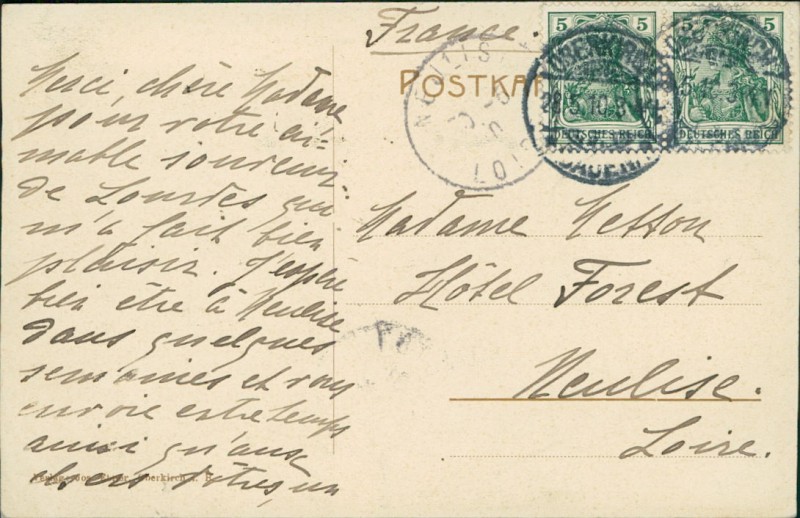 France.
5 5
5 5
POSTKA
DEUTSCHES REICH
DEUTSCHES REICH
Merci, chère Madame
pour votre ai-
mable souvenir
de Lourdes qui
m'a fait bien
plaisir. J'espère
bien être à Neulise
dans quelques
semaines et vous
envoie entretemps
ainsi qu'aux
chers vôtres, un
Madame
Hôtel Forest
Neulise.
Loire.